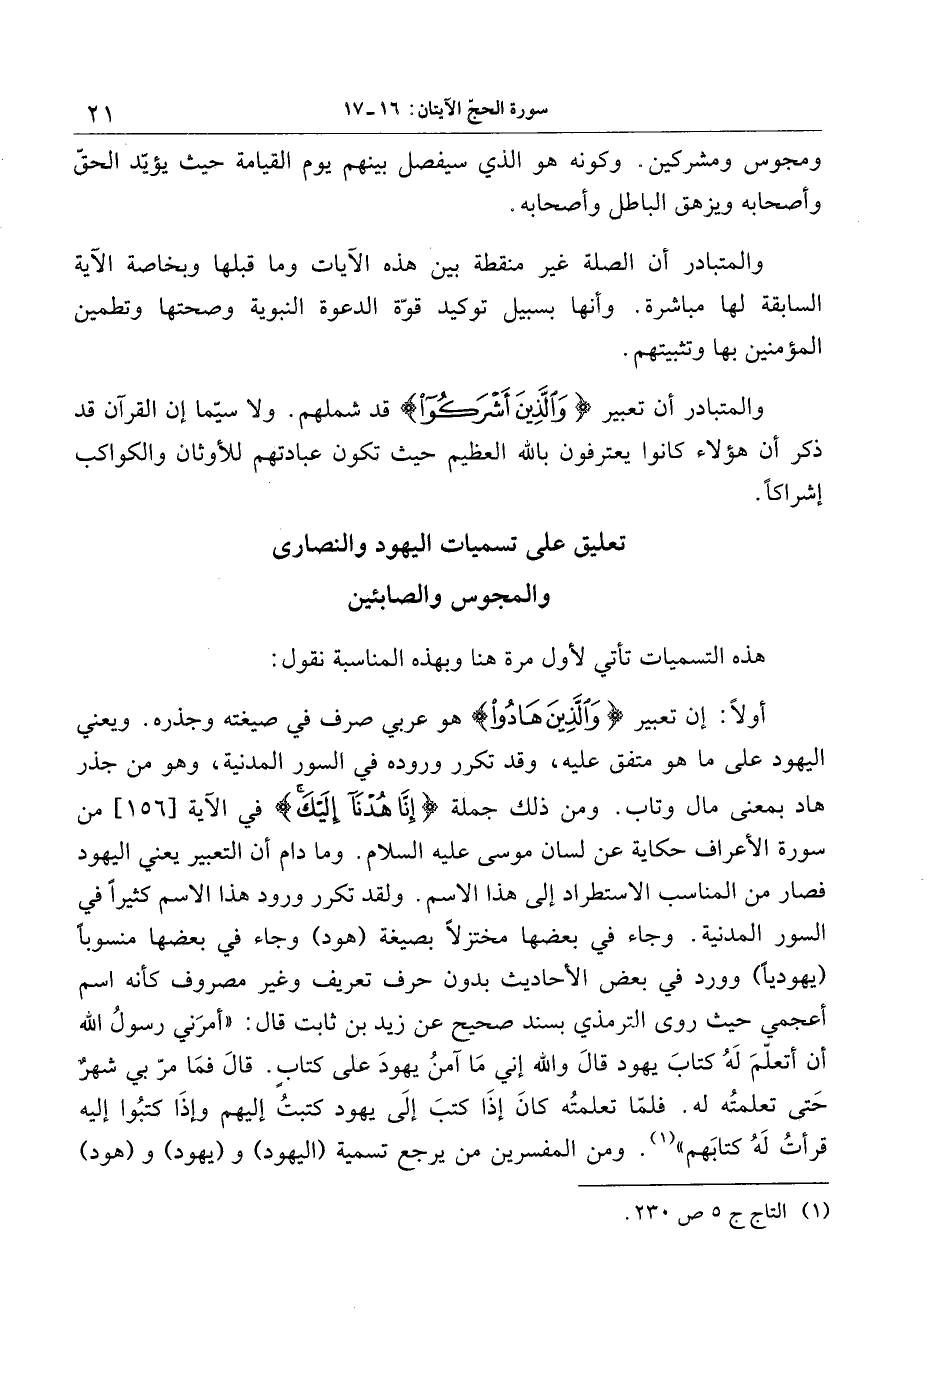 سورة الحجّ الآيتان: ١٦ـ١٧
٢١
ومجوس ومشركين. وكونه هو الذي سيفصل بينهم يوم القيامة حيث يؤيّد الحقّ
وأصحابه ويزهق الباطل وأصحابه.
والمتبادر أن الصلة غير منقطة بين هذه الآيات وما قبلها وبخاصة الآية
السابقة لها مباشرة. وأنها بسبيل توكيد قوّة الدعوة النبوية وصحتها وتطمين
المؤمنين بها وتثبيتهم.
والمتبادر أن تعبير ﴿وَٱلَّذِينَ أَشْرَكُوٓا۟﴾ قد شملهم. ولا سيّما إن القرآن قد
ذكر أن هؤلاء كانوا يعترفون بالله العظيم حيث تكون عبادتهم للأوثان والكواكب
إشراكاً.
تعليق على تسميات اليهود والنصارى
والمجوس والصابئين
هذه التسميات تأتي لأول مرة هنا وبهذه المناسبة نقول:
أولاً: إن تعبير ﴿وَٱلَّذِينَ هَادُوا۟﴾ هو عربي صرف في صيغته وجذره. ويعني
اليهود على ما هو متفق عليه، وقد تكرر وروده في السور المدنية، وهو من جذر
هاد بمعنى مال وتاب. ومن ذلك جملة ﴿إِنَّا هُدْنَآ إِلَيْكَ﴾ في الآية [١٥٦] من
سورة الأعراف حكاية عن لسان موسى عليه السلام. وما دام أن التعبير يعني اليهود
فصار من المناسب الاستطراد إلى هذا الاسم. ولقد تكرر ورود هذا الاسم كثيراً في
السور المدنية. وجاء في بعضها مختزلاً بصيغة (هود) وجاء في بعضها منسوباً
(يهودياً) وورد في بعض الأحاديث بدون حرف تعريف وغير مصروف كأنه اسم
أعجمي حيث روى الترمذي بسند صحيح عن زيد بن ثابت قال: «أمرَني رسولُ الله
أن أتعلّمَ لَهُ كتابَ يهود قالَ والله إني مَا آمنُ يهودَ على كتابٍ. قالَ فمَا مرّ بي شهرٌ
حَتى تعلمتُه له. فلمّا تعلمتُه كانَ إذَا كتبَ إلَى يهود كتبتُ إليهم وإذَا كتبُوا إليه
قرأتُ لَهُ كتابَهم»(١). ومن المفسرين من يرجع تسمية (اليهود) و (يهود) و (هود)
(١) التاج ج ٥ ص ٢٣٠.